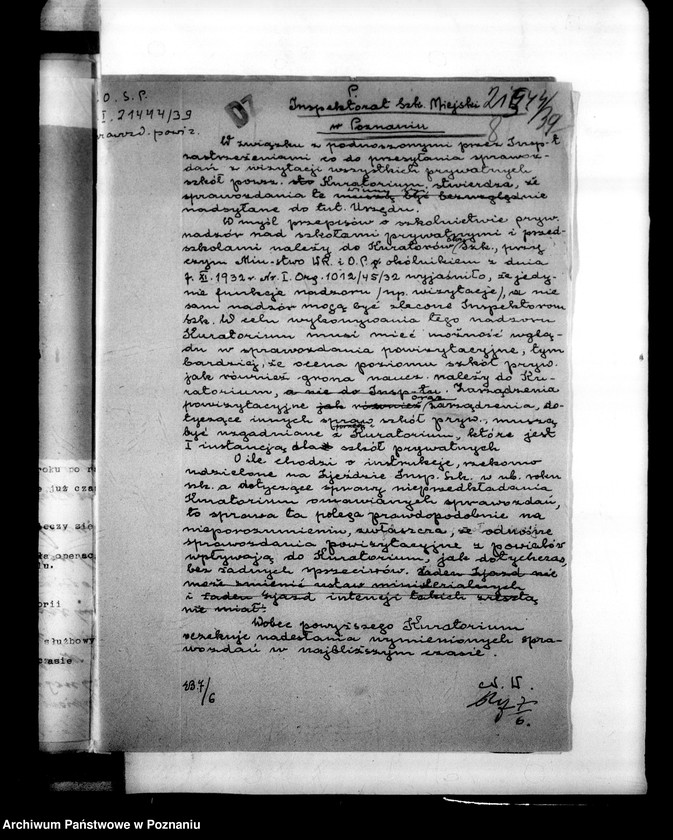 O. S. P.
I. 21444/39
P.
Inspektorat Szk. Miejski
w Poznaniu
21444/39
8
W związku z podnoszonymi przez Insp-t
zastrzeżeniami co do przesyłania sprawoz-
dań z wizytacji wszystkich prywatnych
szkół powsz. Kuratorium stwierdza, że
sprawozdania te muszą być bezwzględnie
nadsyłane do tut. Urzędu.
W myśl przepisów o szkolnictwie pryw.
nadzór nad szkołami prywatnymi i przed-
szkolami należy do Kuratorów Okr. Szk., przy
czym Min-stwo WR. i O.P. okólnikiem z dnia
7. XI. 1932 r. Nr. I. Org. 1012/45/32 wyjaśniło, że jedy-
nie funkcje nadzoru /np. wizytacje/, a nie
sam nadzór mogą być zlecone Inspektorom
Szk. W celu wykonywania tego nadzoru
Kuratorium musi mieć możność wglą-
du w sprawozdania powizytacyjne, tym
bardziej, że ocena poziomu szkół pryw.
jak również grona naucz. należy do Ku-
ratorium, a nie do Insp-tu. Zarządzenia
powizytacyjne jak również oraz zarządzenia, do-
tyczące innych spraw szkół pryw., muszą
być uzgadniane z Kuratorium, które jest
I instancją dla szkół prywatnych
O ile chodzi o instrukcje, rzekomo
udzielone na Zjeździe Insp. Szk. w ub. roku
szk. a dotyczące sprawy nieprzedkładania
Kuratorium omawianych sprawozdań,
to sprawa ta polega prawdopodobnie na
nieporozumieniu, zwłaszcza, że odnośne
sprawozdania powizytacyjne z powiatów
wpływają do Kuratorium, jak dotychczas,
bez żadnych sprzeciwów. Żaden Zjazd nie
może zmienić ustaw ministerialnych
i żaden Zjazd intencji takich zresztą
nie miał.
Wobec powyższego Kuratorium
oczekuje nadesłania wymienionych spra-
wozdań w najbliższym czasie.
7/6
N. W.
7/6.
roku po
już cza
służbowy
czasie
Archiwum Państwowe w Poznaniu